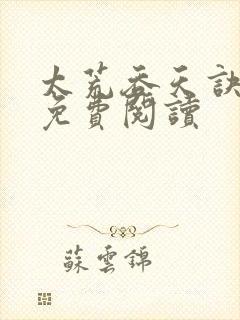 太荒吞天訣
免費閱讀
蘇雲錦